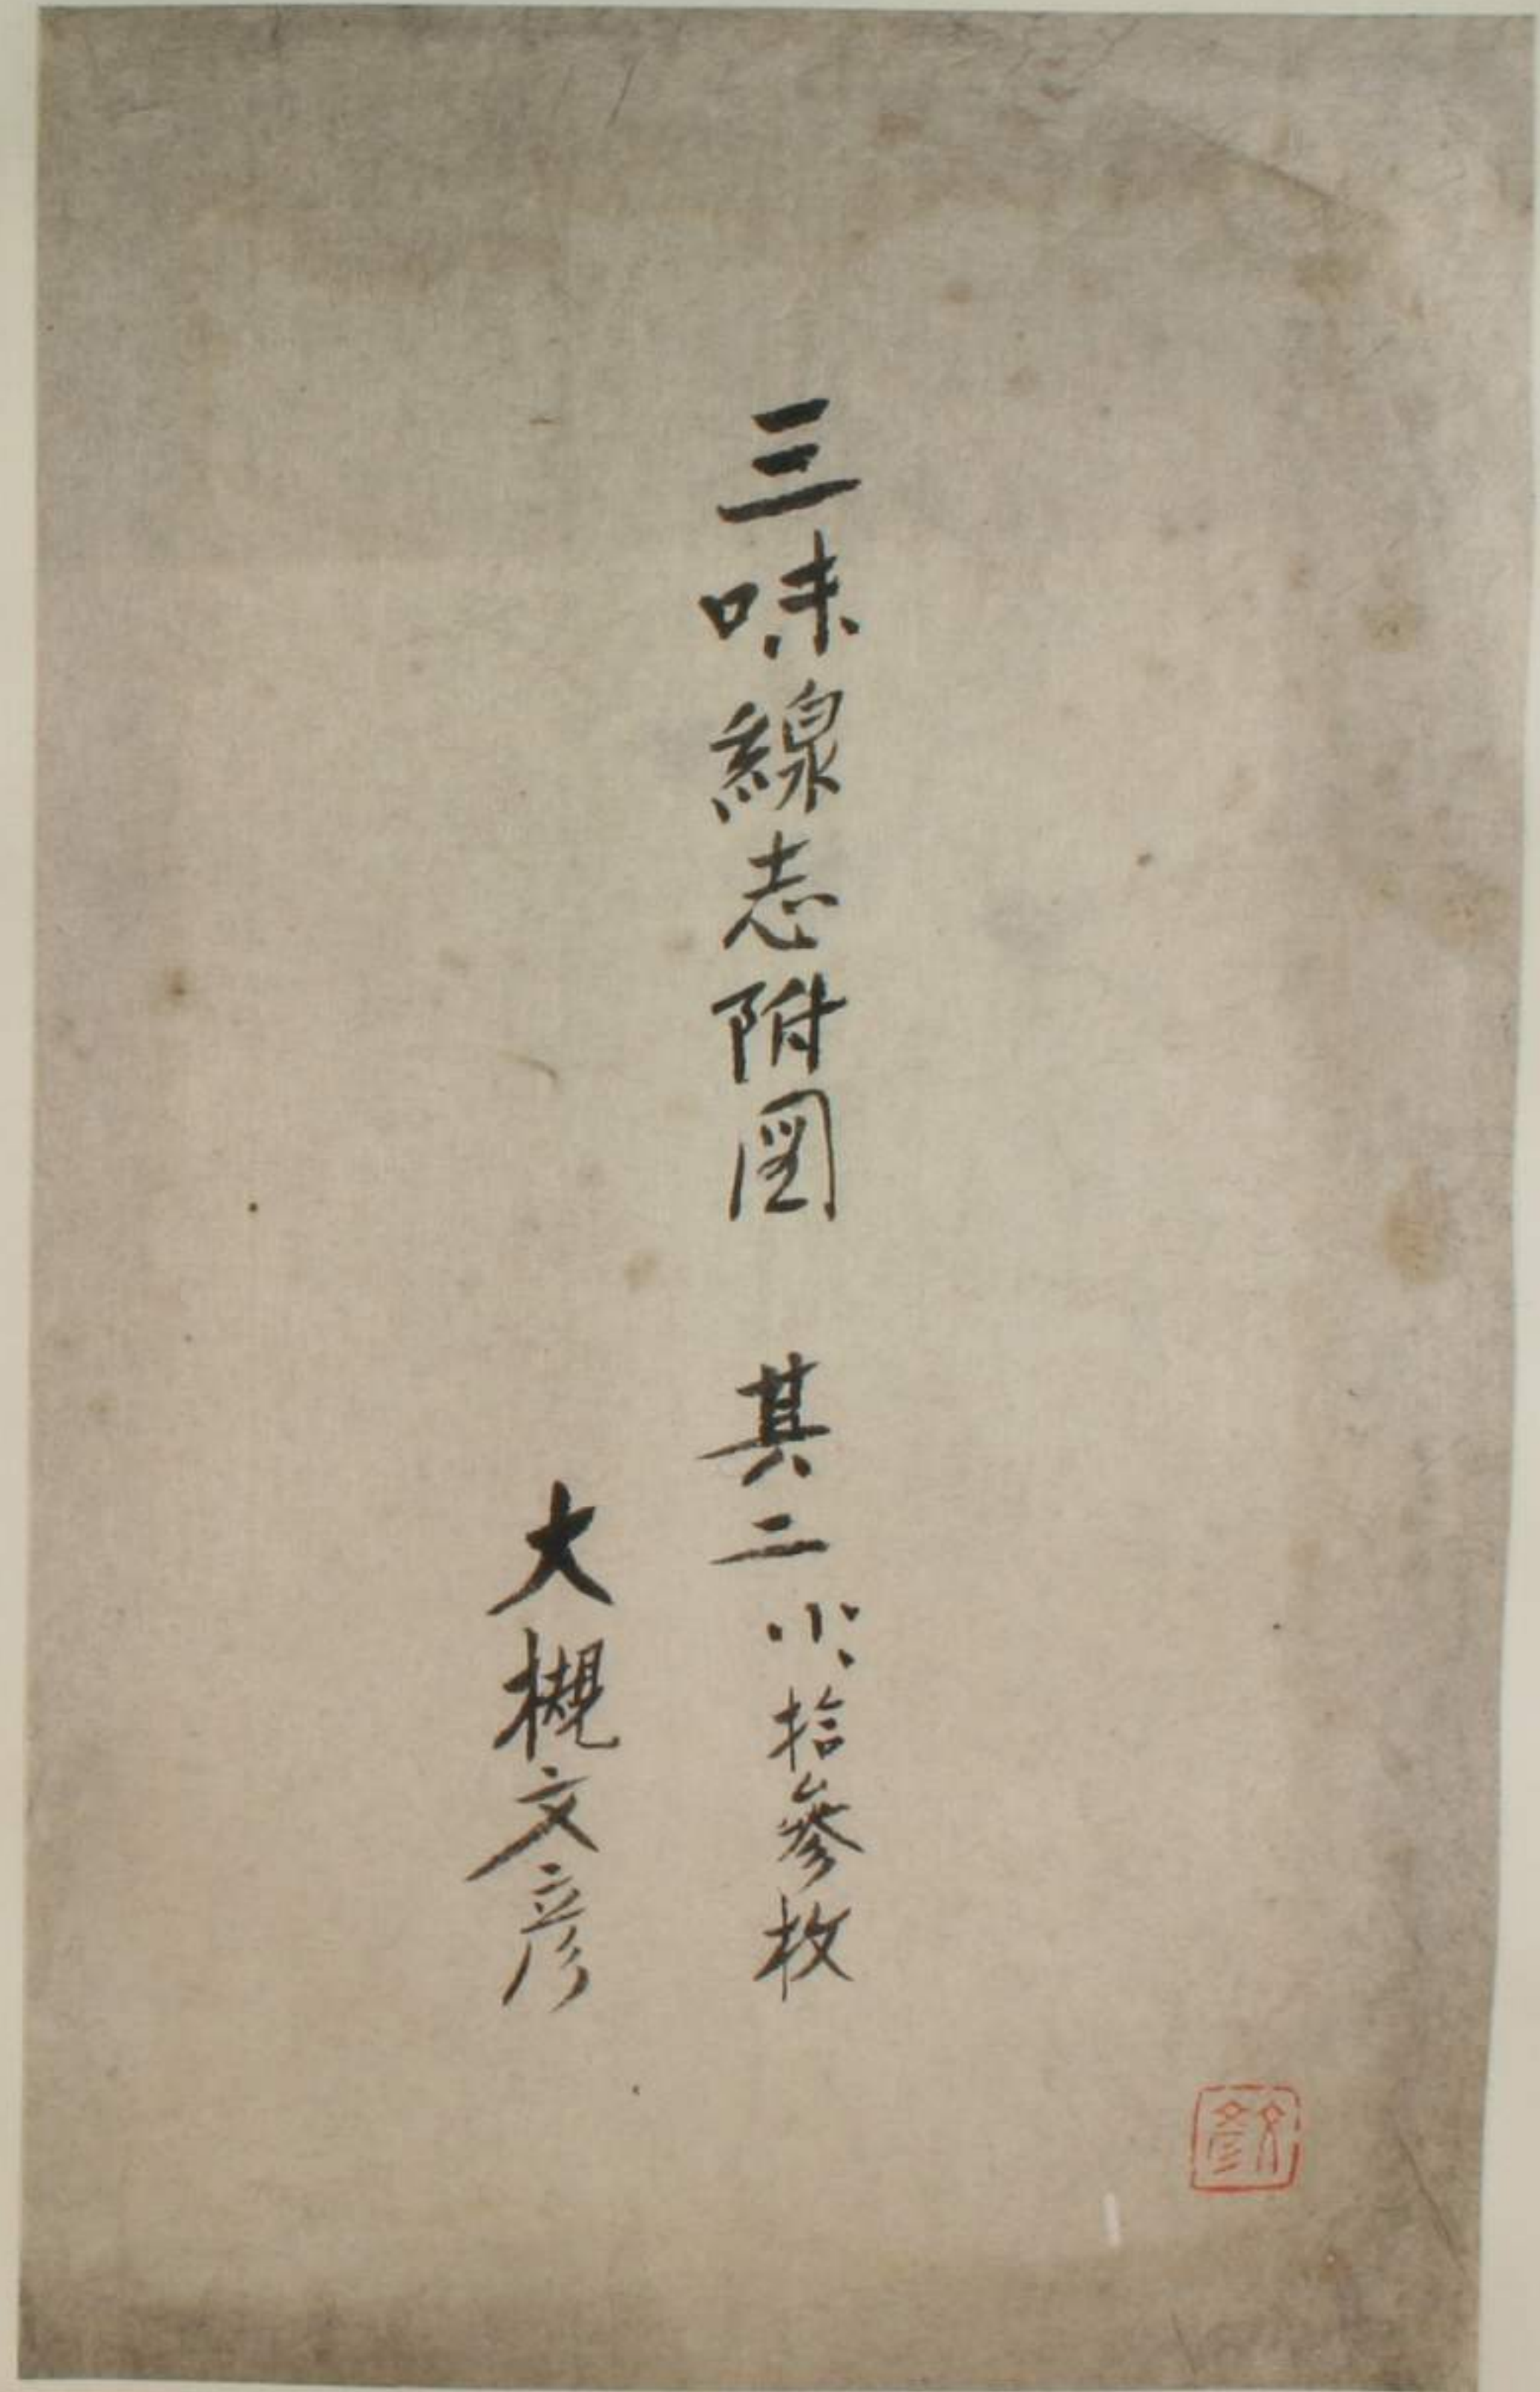 三味線志附圖 其二 小拾參枚
大槻文彦
文彦